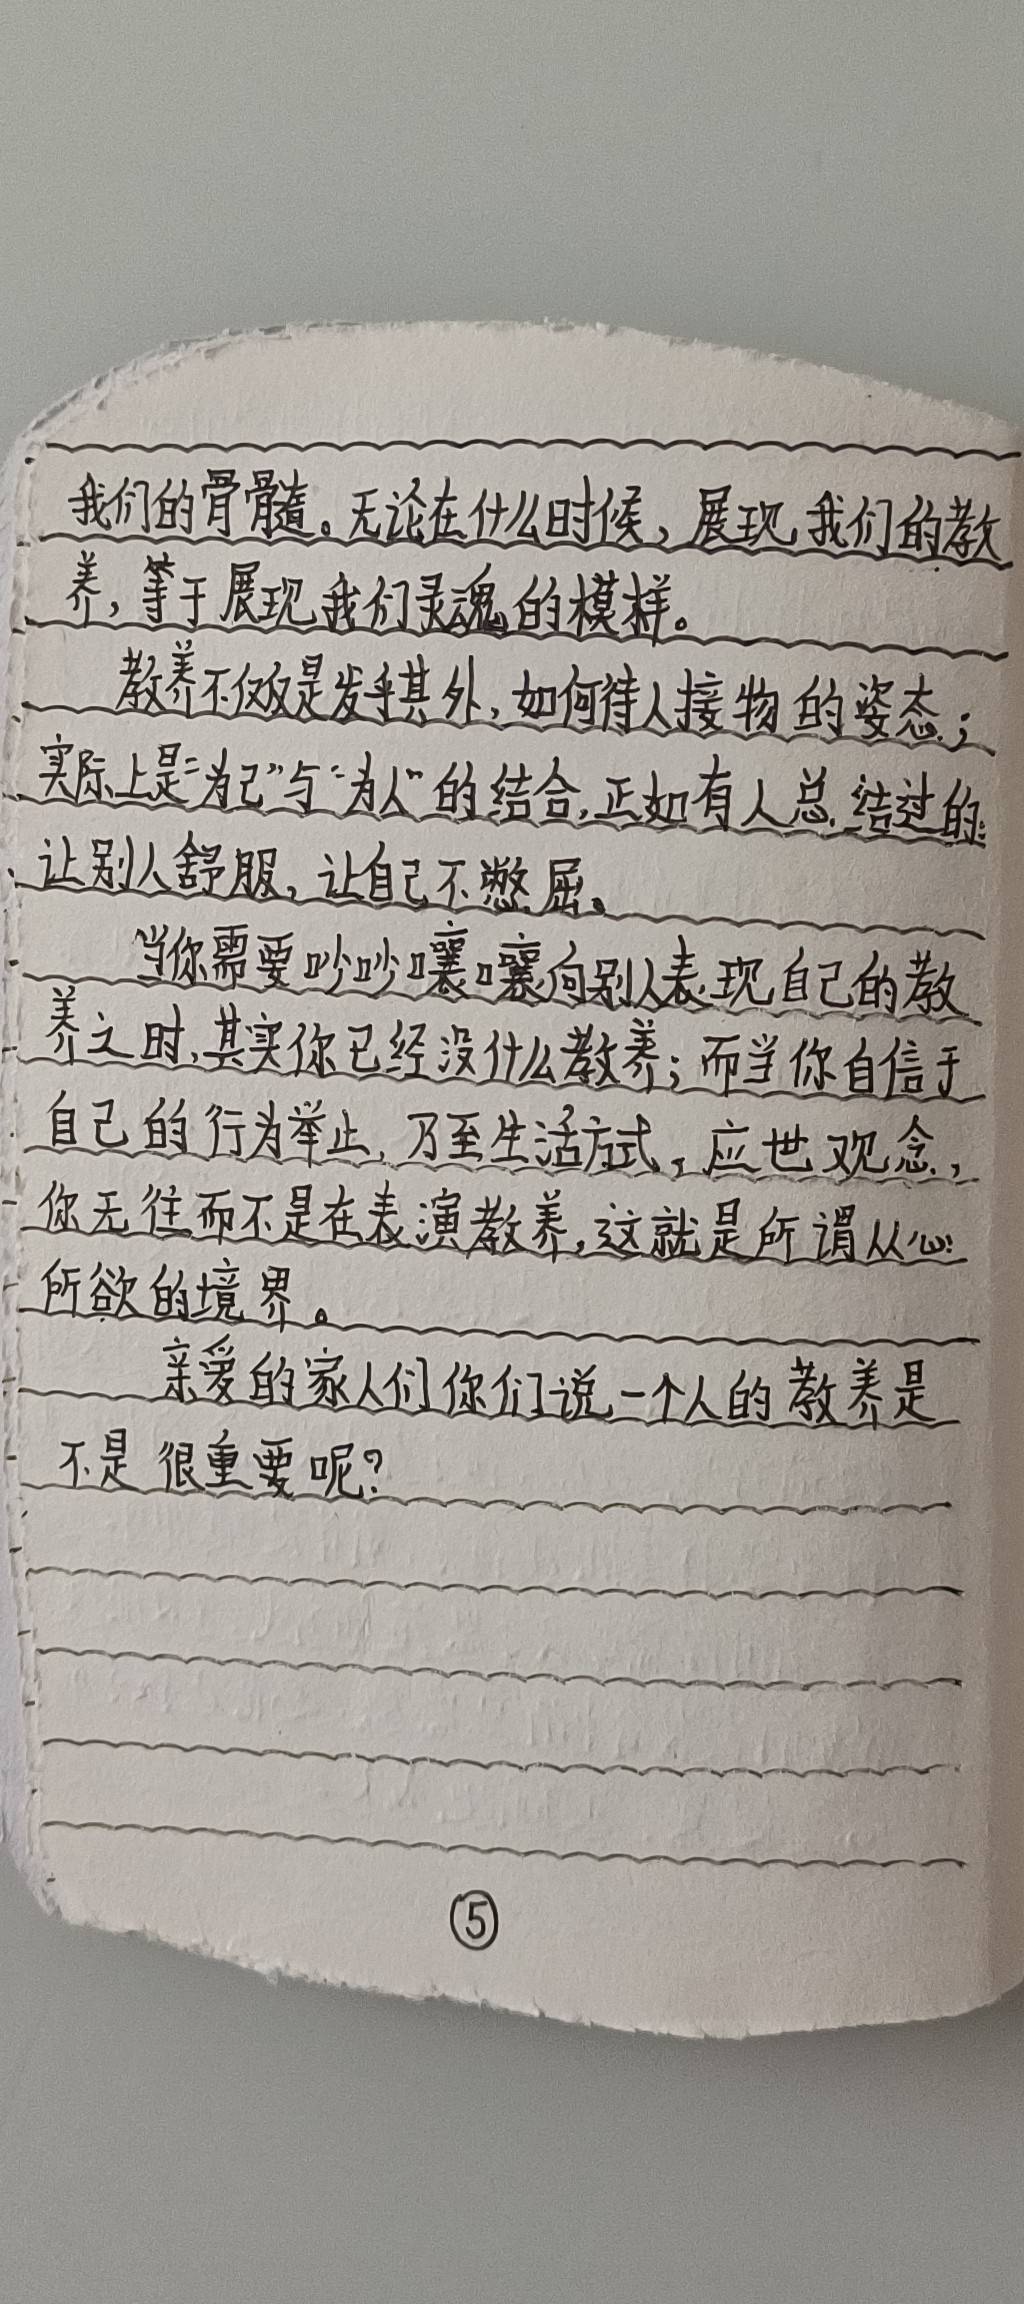 我们的骨髓。无论在什么时候，展现我们的教
养，等于展现我们灵魂的模样。
教养不仅仅是发乎其外，如何待人接物的姿态；
实际上是“为己”与“为人”的结合，正如有人总结过的：
让别人舒服，让自己不憋屈。
当你需要吵吵嚷嚷向别人表现自己的教
养之时，其实你已经没什么教养；而当你自信于
自己的行为举止，乃至生活方式，应世观念，
你无往而不是在表演教养，这就是所谓从心
所欲的境界。
亲爱的家人们你们说一个人的教养是
不是很重要呢？
⑤